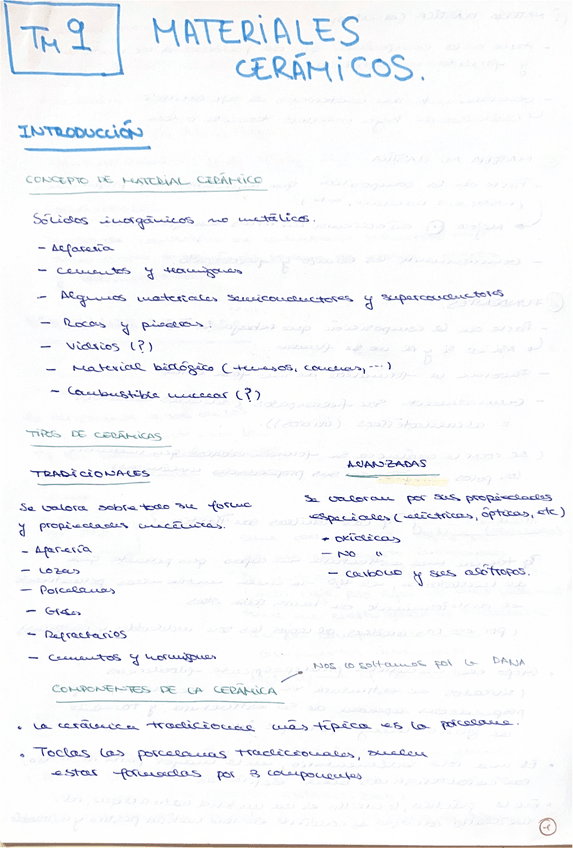 TM 9
MATERIALES
CERÁMICOS.
INTRODUCCIÓN
CONCEPTO DE MATERIAL CERÁMICO
Sólidos inorgánicos no metálicos.
- Alfarería
- Cementos y hormigones
- Algunos materiales semiconductores y superconductores
- Rocas y piedras.
- Vidrios (?)
- Material biológico (huesos, conchas, ...)
- Combustible nuclear (?)
TIPOS DE CERÁMICAS
TRADICIONALES
Se valora sobre todo su forma
y propiedades mecánicas.
- Alfarería
- Lozas
- Porcelanas
- Gres
- Refractarios
- Cementos y hormigones
AVANZADAS
Se valoran por sus propiedades
especiales (eléctricas, ópticas, etc)
- oxídicas
- NO "
- carbono y sus alótropos.
COMPONENTES DE LA CERÁMICA
Nos lo saltamos por la DANA
• La cerámica tradicional más típica es la porcelana.
• Todas las porcelanas tradicionales, suelen
estar formadas por 3 componentes
1